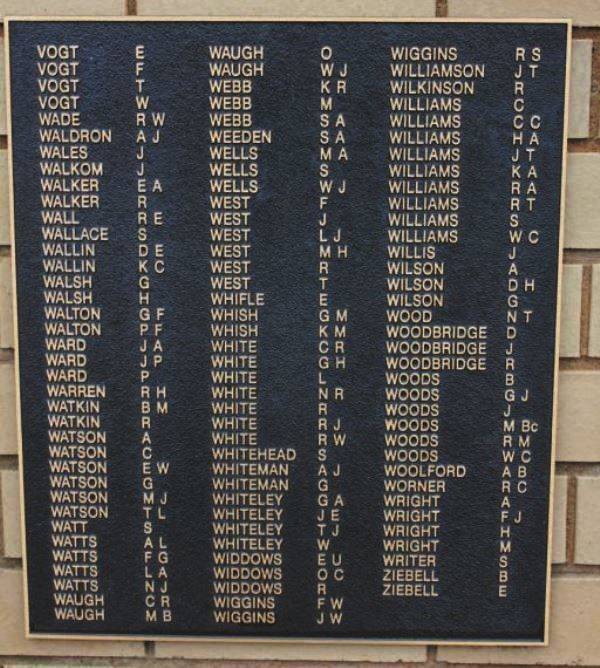 VOGT E
VOGT F
VOGT T
VOGT W
WADE R W
WALDRON A J
WALES J
WALKOM J
WALKER E A
WALKER R
WALL R E
WALLACE S
WALLIN D E
WALLIN K C
WALSH G
WALSH H
WALTON G F
WALTON P F
WARD J A
WARD J P
WARD P
WARREN R H
WATKIN B M
WATKIN R
WATSON A
WATSON C
WATSON E W
WATSON G
WATSON M J
WATSON T L
WATT S
WATTS A L
WATTS F G
WATTS L A
WATTS N J
WAUGH C R
WAUGH M B
WAUGH O
WAUGH W J
WEBB K R
WEBB M
WEBB S A
WEEDEN S A
WELLS M A
WELLS S
WELLS W J
WEST F
WEST J
WEST L J
WEST M H
WEST R
WEST T
WHIFLE E
WHISH G M
WHISH K M
WHITE C R
WHITE G H
WHITE L
WHITE N R
WHITE R
WHITE R J
WHITE R W
WHITEHEAD S
WHITEMAN A J
WHITEMAN G
WHITELEY G A
WHITELEY J E
WHITELEY T J
WHITELEY W
WIDDOWS E U
WIDDOWS O C
WIDDOWS R
WIGGINS F W
WIGGINS J W
WIGGINS R S
WILLIAMSON J T
WILKINSON R
WILLIAMS C
WILLIAMS C C
WILLIAMS H A
WILLIAMS J T
WILLIAMS K A
WILLIAMS R A
WILLIAMS R T
WILLIAMS S
WILLIAMS W C
WILLIS J
WILSON A
WILSON D H
WILSON G
WOOD N T
WOODBRIDGE D
WOODBRIDGE J
WOODBRIDGE R
WOODS B
WOODS G J
WOODS J
WOODS M Bc
WOODS R M
WOODS W C
WOOLFORD A B
WORNER R C
WRIGHT A
WRIGHT F J
WRIGHT H
WRIGHT M
WRITER S
ZIEBELL B
ZIEBELL E